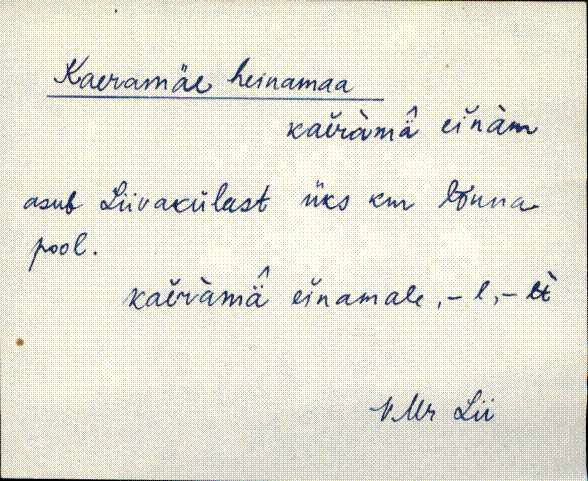 Kaeramäe heinamaa
kaĕràmä̂ eĭnàm
asub Liivakülast üks km lõuna
pool.
kaĕràmä̂ eĭnamale, -l, -lt
VMr Lii